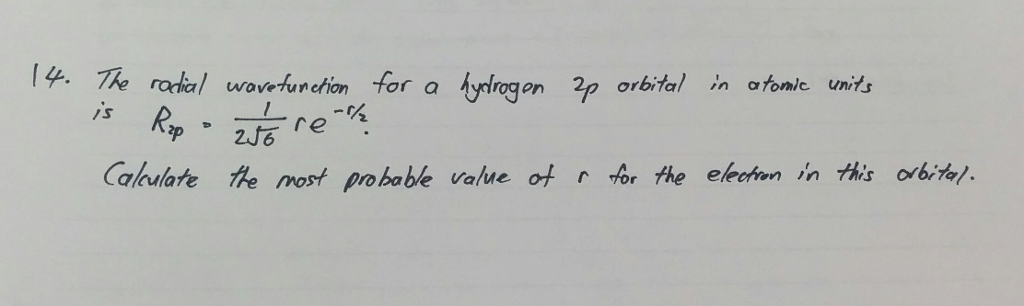 14. The radial wavefunction for a hydrogen 2p orbital in atomic units
is R₂p = 1/(2√6) re^(-r/2).
Calculate the most probable value of r for the electron in this orbital.